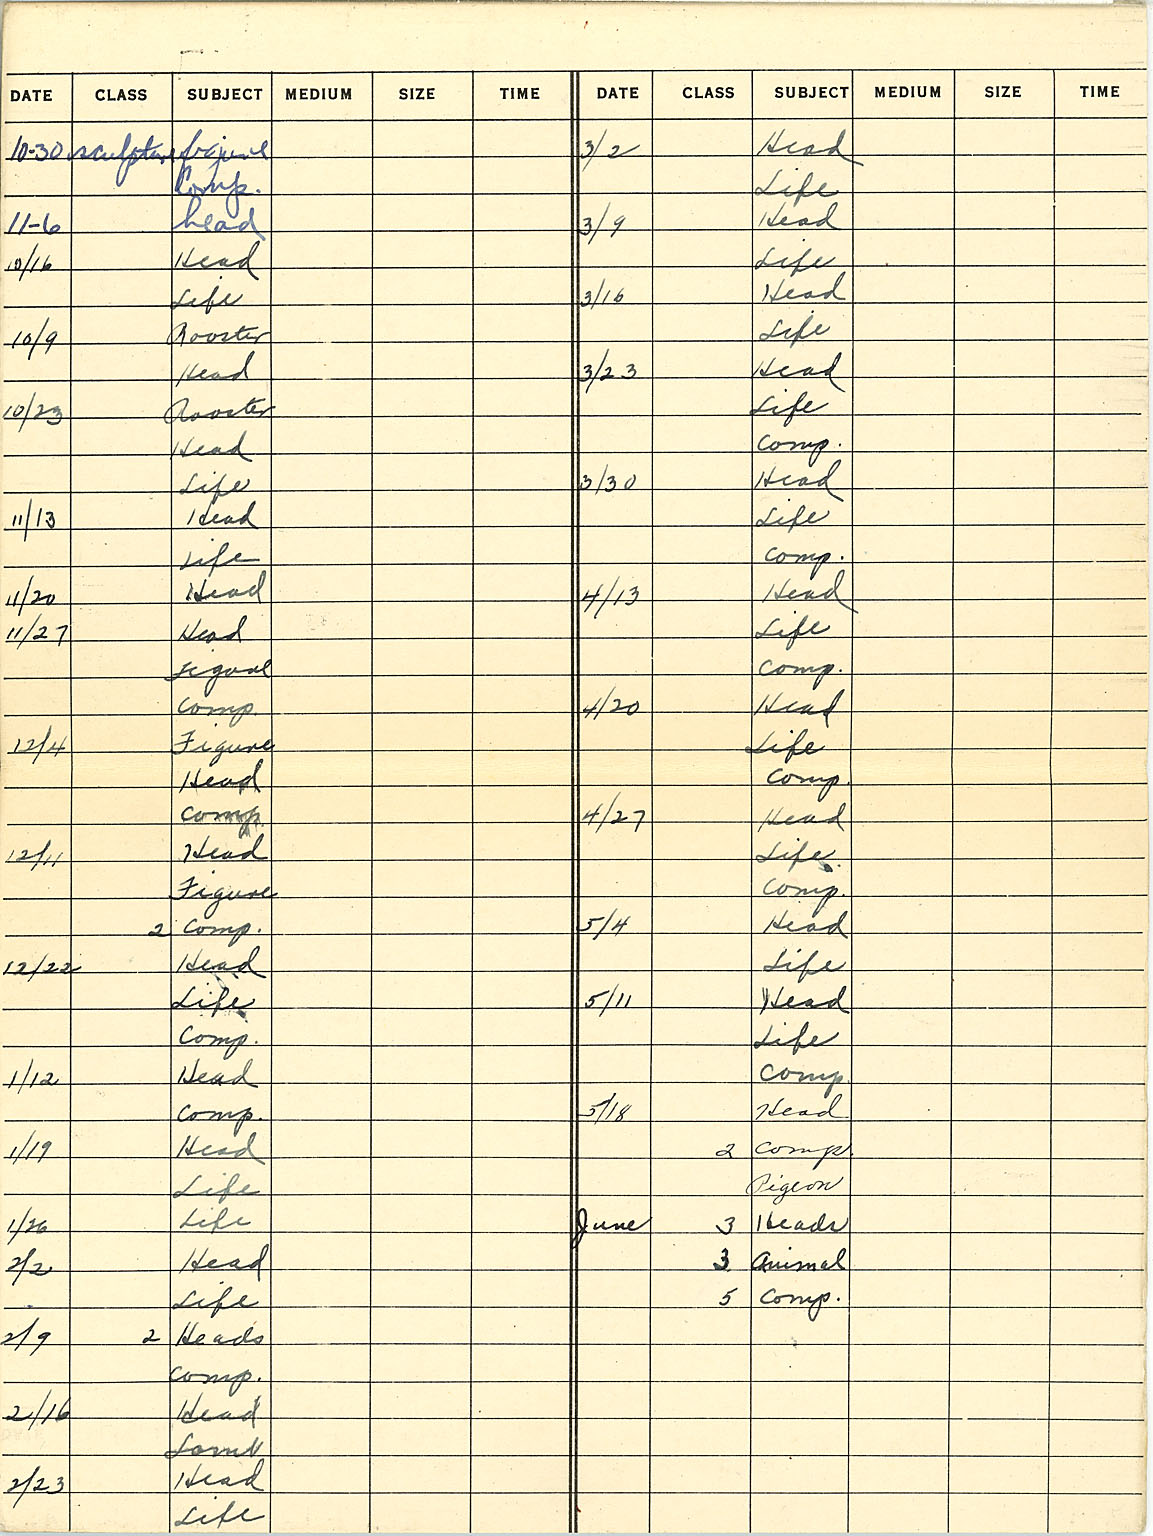 DATE CLASS SUBJECT MEDIUM SIZE TIME
10-30 sculpture figure
Comp.
11-6 head
10/16 Head
Life
10/9 Rooster
Head
10/23 Rooster
Head
Life
11/13 Head
Life
11/20 Head
11/27 Head
Figure
Comp.
12/4 Figure
Head
Comp.
12/11 Head
Figure
2 Comp.
12/22 Head
Life
Comp.
1/12 Head
Comp.
1/19 Head
Life
1/26 Life
2/2 Head
Life
2/9 2 Heads
Comp.
2/16 Head
2/23 Head
Life
DATE CLASS SUBJECT MEDIUM SIZE TIME
3/2 Head
Life
3/9 Head
Life
3/16 Head
Life
3/23 Head
Life
Comp.
3/30 Head
Life
Comp.
4/13 Head
Life
Comp.
4/20 Head
Life
Comp.
4/27 Head
Life
Comp.
5/4 Head
Life
5/11 Head
Life
Comp.
5/18 Head
2 Comp.
Pigeon
June 3 Heads
3 Animal
5 Comp.